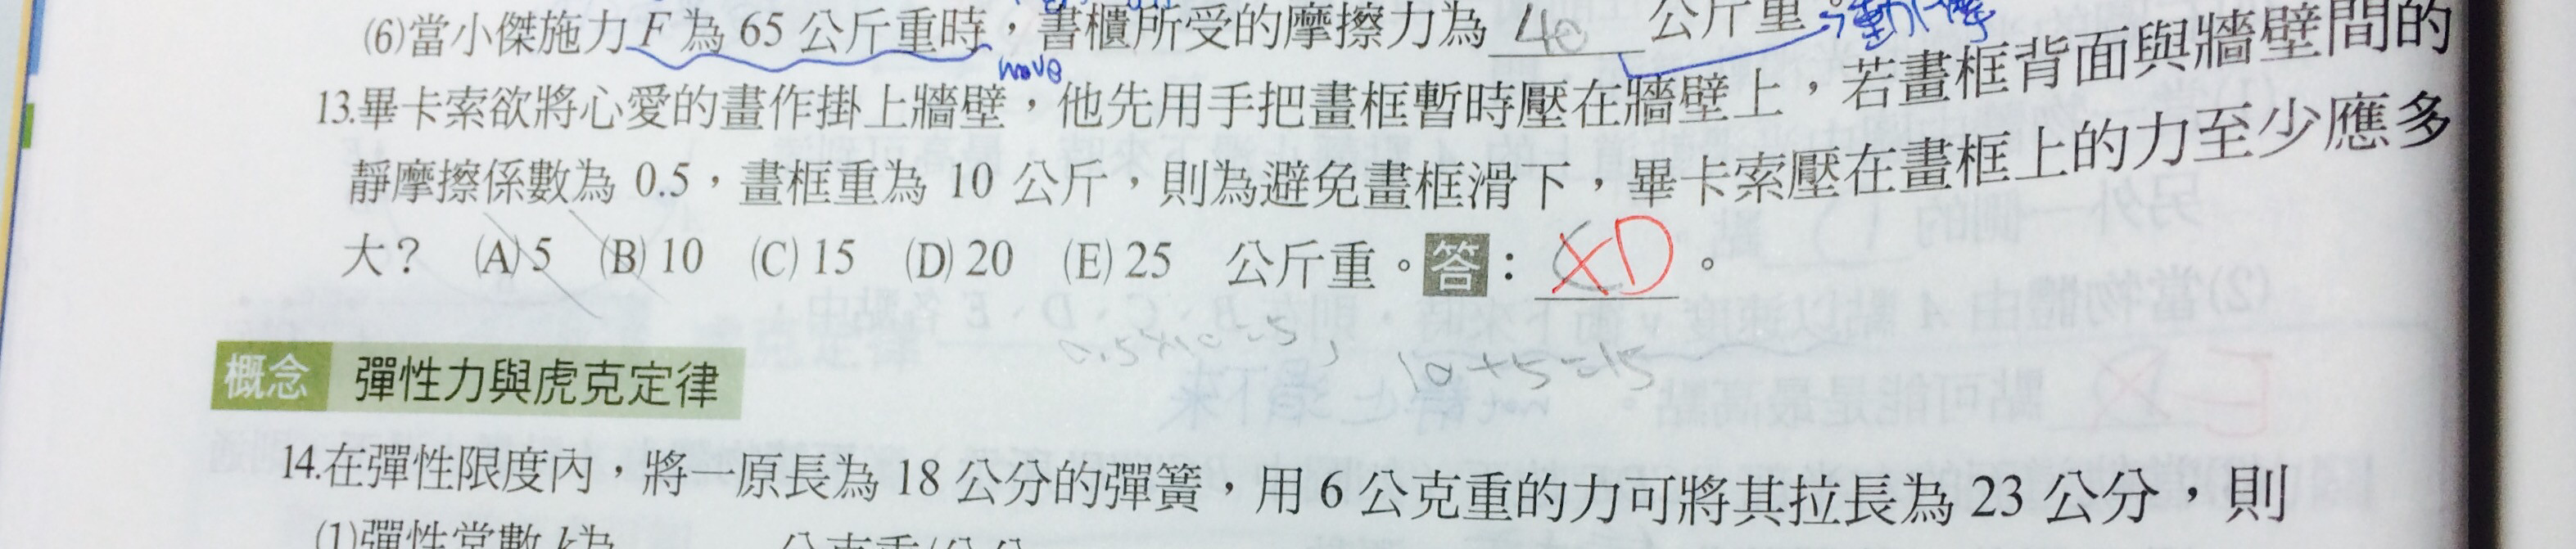 (6)當小傑施力 F 為 65 公斤重時，書櫃所受的摩擦力為 40 公斤重。
move
13.畢卡索欲將心愛的畫作掛上牆壁，他先用手把畫框暫時壓在牆壁上，若畫框背面與牆壁間的
靜摩擦係數為 0.5，畫框重為 10 公斤，則為避免畫框滑下，畢卡索壓在畫框上的力至少應多
大？ (A) 5 (B) 10 (C) 15 (D) 20 (E) 25 公斤重。答：C D。
0.5×10=5, 10+5=15
概念 彈性力與虎克定律
14.在彈性限度內，將一原長為 18 公分的彈簧，用 6 公克重的力可將其拉長為 23 公分，則
(1)彈性常數 k 為 公克重/公分